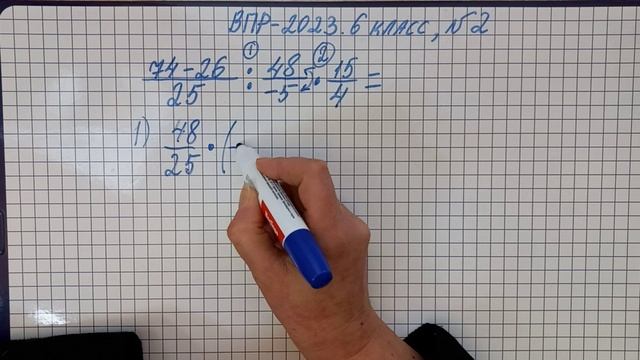 ВПР-2023. 6 класс, №2
① ②
74-26/25 : 48/-5 · 15/4 =
1) 48/25 · (-